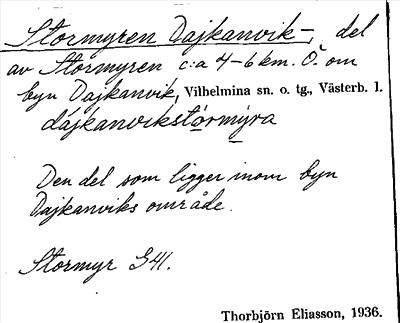 Stormyren Dajkanvik-, del
av Stormyren c:a 4-6 km. O. om
byn Dajkanvik, Vilhelmina sn. o. tg., Västerb. l.
dájkanvikstórmyra
Den del som ligger inom byn
Dajkanviks område.
Stormyr G41.
Thorbjörn Eliasson, 1936.